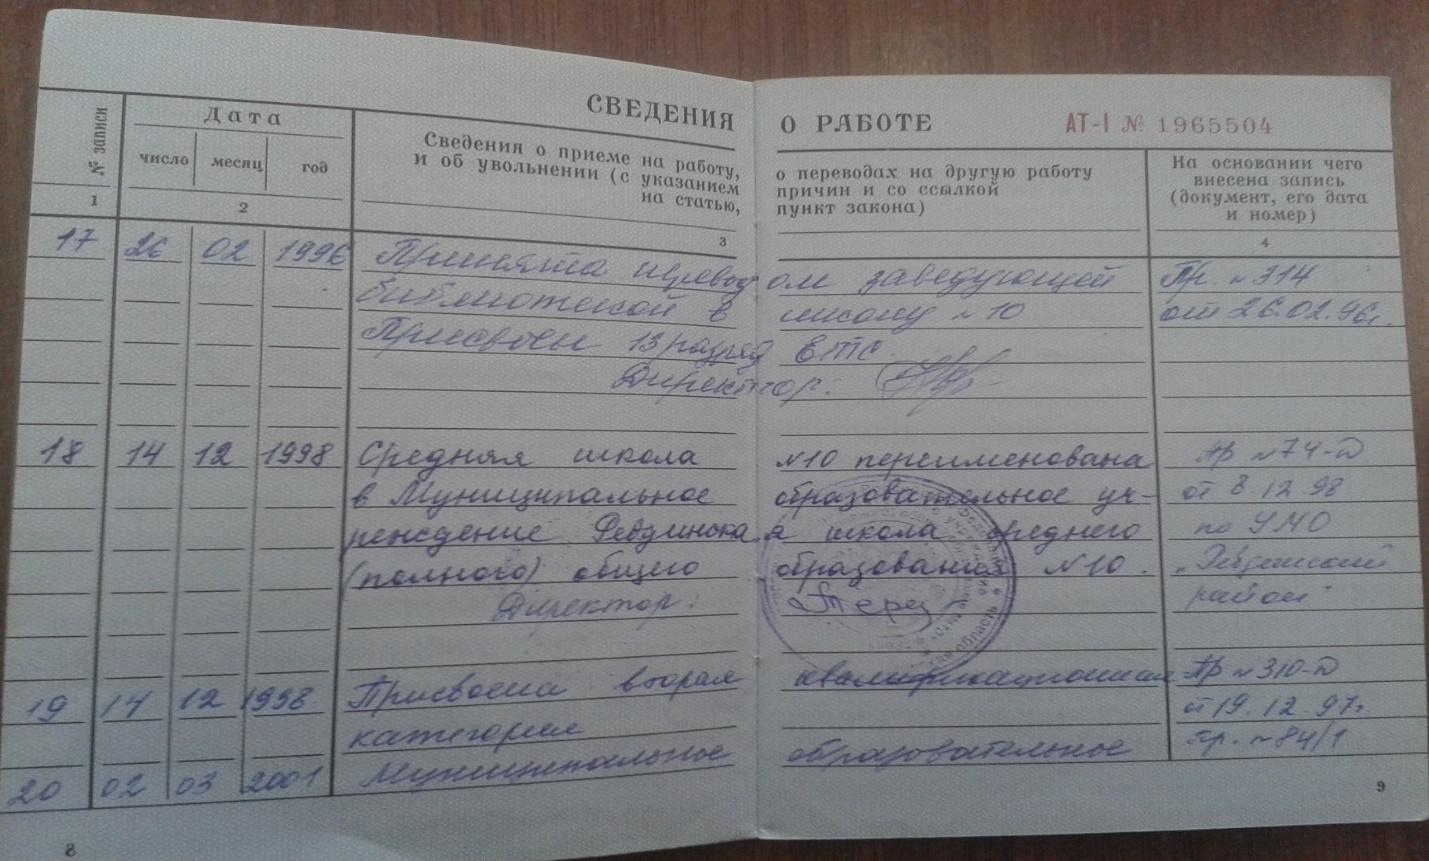 СВЕДЕНИЯ О РАБОТЕ АТ-I № 1965504
№ записи
Дата
число месяц год
Сведения о приеме на работу, о переводах на другую работу
и об увольнении (с указанием причин и со ссылкой
на статью, пункт закона)
На основании чего
внесена запись
(документ, его дата
и номер)
1 2 3 4
17 26 02 1996 Принята переводом заведующей Пр. №314
библиотекой в школу №10 от 26.02.96г.
Присвоен 13 разряд ЕТС
Директор:
18 14 12 1998 Средняя школа №10 переименована Пр №74-Д
в Муниципальное образовательное уч- от 8.12.98
реждение Ревдинская школа среднего по УМО
(полного) общего образования №10. "Ревдинский
Директор: район"
19 14 12 1998 Присвоена вторая квалификационная Пр №310-Д
категория от 19.12.97г.
20 02 03 2001 Муниципальное образовательное пр. №84/1
8 9